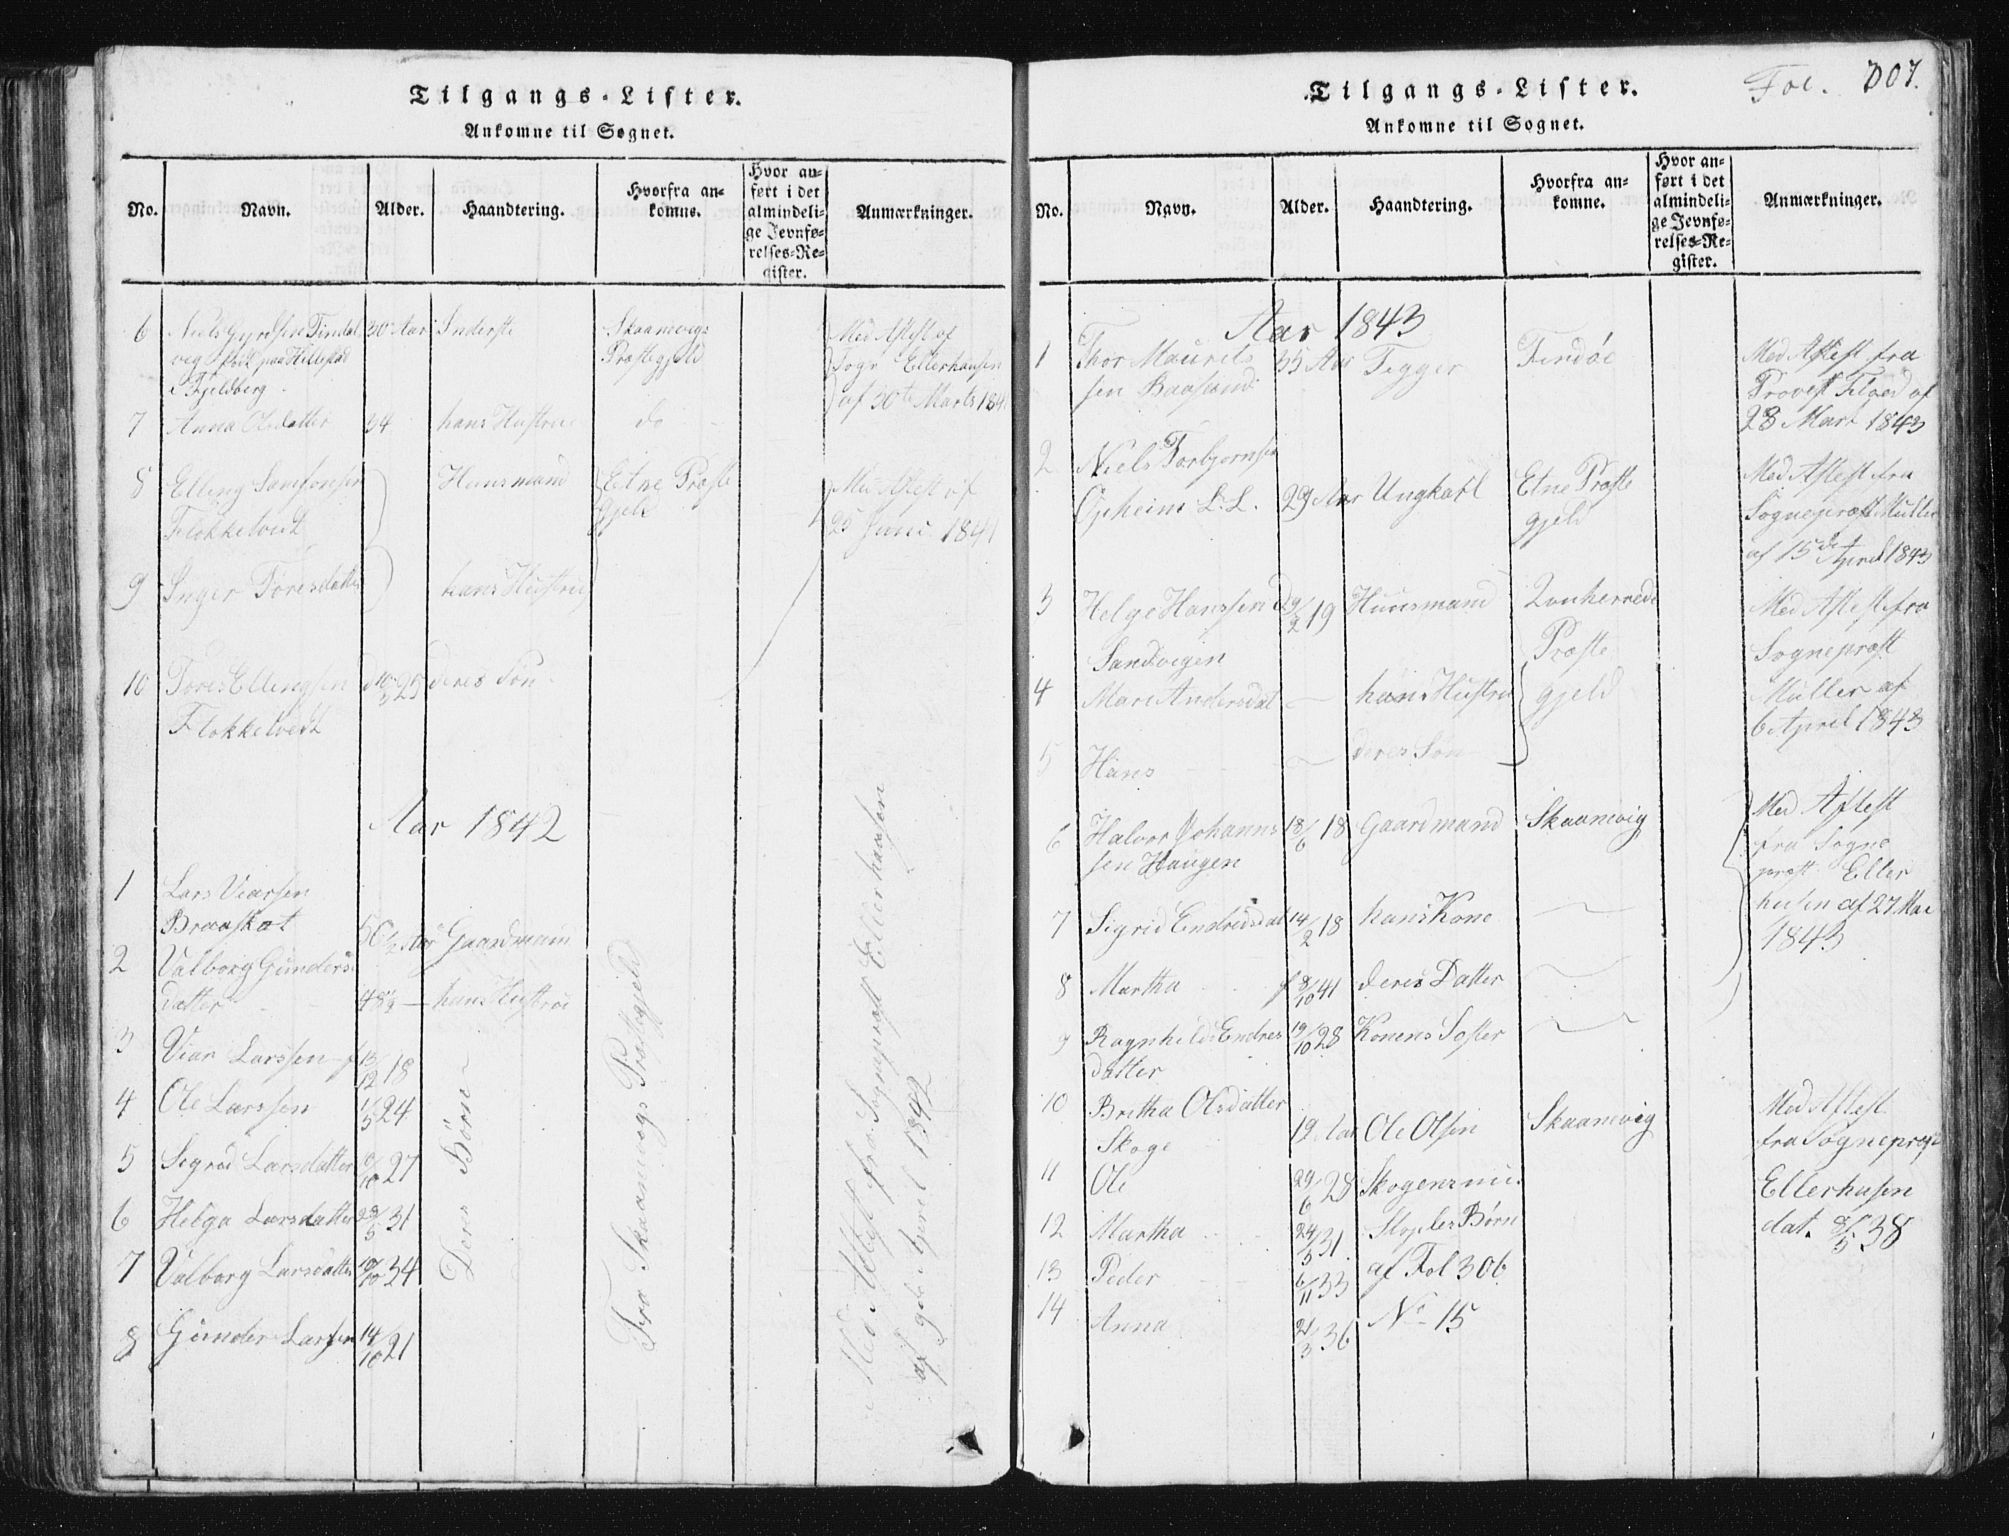 Tilgangs-Lister.
Ankomne til Sognet.
No.
Navn.
Alder.
Haandtering.
Hvorfra an-
komne.
Hvor an-
ført i det
almindeli-
ge Jevnfø-
relses-Re-
gister.
Anmærkninger.
6
30 Aar
Inderste
Skaanevigs
Præstegjeld
Med Attest af
Sogr Ellerhausen
af 30te Marts 184
i Fjeldberg
7
Anna Olsdatter
34
hans Hustrue
do
8
Elling Samsonsen
Flokketvedt
Huusmand
Etne Præste
gjeld
Med Attest af
25 Juni 1841
9
Inger Toresdatter
hans Hustrue
10
Tores Ellingsen
Flokketvedt
25
deres Søn
Aar 1842
1
Lars Viarsen
Braaskat
50½ Aar
Gaardmain
2
Valborg Gunders
datter
48½
hans Hustrue
3
Viar Larssen
f 13/12 18
4
Ole Larssen
1/5 24
5
Sigrid Larsdatter
6/10 27
6
Helga Larsdatter
28/5 31
7
Valborg Larsdatter
10/10 34
8
Gunder Larsen
14/10 21
Deres Børn
Fra Skaanevigs Præstegjeld
Med Attest fra Sognepræst Ellerhausen
af 9de April 1842
Tilgangs-Lister.
Ankomne til Sognet.
Fol. 307.
No.
Navn.
Alder.
Haandtering.
Hvorfra an-
komne.
Hvor an-
ført i det
almindeli-
ge Jevnfø-
relses-Re-
gister.
Anmærkninger.
Aar 1843
1
Thor Maurits
sen Baasund
35 Aar
Tigger
Findöe
Med Attest fra
Provst
af
28 Mart 1843
2
Niels Torbjornsen
Opheim L.L.
29 Aar
Ungkarl
Etne Præste
gjeld
Med Attest fra
Sognepræst Müller
af 15de April 1843
3
Helge Hanssen
Sandvigen
29/2 19
Huusmand
Qvinherreds
Præste
gjeld
Med Attest fra
Sognepræst
Müller af
6 April 1843
4
Mari Andersdat
hans Hustrue
5
Hans
deres Søn
6
Halvor Johannes
sen Haugen
18/6 18
Gaardmand
Skaanevig
Med Attest
fra Sogne
præst Eller
husen af 27 Mai
1843
7
Sigrid Endresdat
14/2 18
hans Kone
8
Martha
f 8/10 41
deres Datter
9
Ragnhild Endres
datter
19/10 28
Konens Søster
10
Britha Olsdatter
Skoge
19 Aar
Ole Olsen
Skaanevig
Med Attest
fra Sognepræst
Ellerhusen
dat. 8/5 38
11
Ole
29/6 28
Skogens
12
Martha
24/5 31
Børn
13
Peder
6/11 33
af Fol 306
14
Anna
21/3 36
No 15